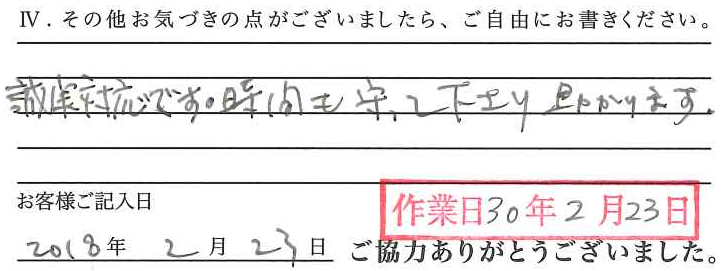 Ⅳ．その他お気づきの点がございましたら、ご自由にお書きください。
誠実対応です。時間も守って下さり助かります。
お客様ご記入日
作業日30年2月23日
2018年 2月 23日 ご協力ありがとうございました。